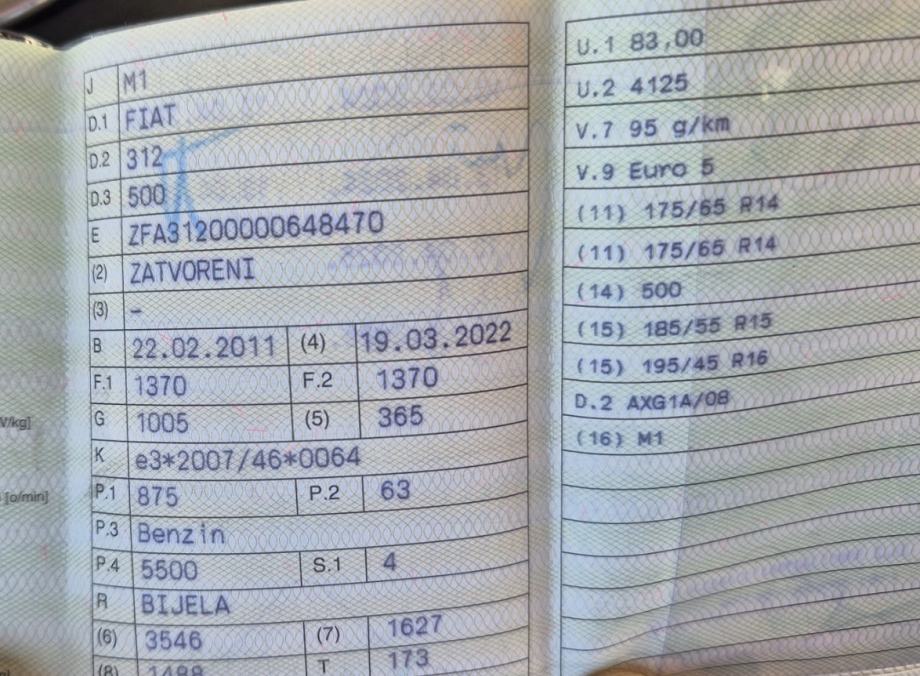 J M1
D.1 FIAT
D.2 312
D.3 500
E ZFA31200000648470
(2) ZATVORENI
(3) –
B 22.02.2011 (4) 19.03.2022
F.1 1370 F.2 1370
G 1005 (5) 365
K e3*2007/46*0064
P.1 875 P.2 63
P.3 Benzin
P.4 5500 S.1 4
R BIJELA
(6) 3546 (7) 1627
(8) 1488 T 173
U.1 83,00
U.2 4125
V.7 95 g/km
V.9 Euro 5
(11) 175/65 R14
(11) 175/65 R14
(14) 500
(15) 185/55 R15
(15) 195/45 R16
D.2 AXG1A/08
(16) M1
V/kg]
[o/min]